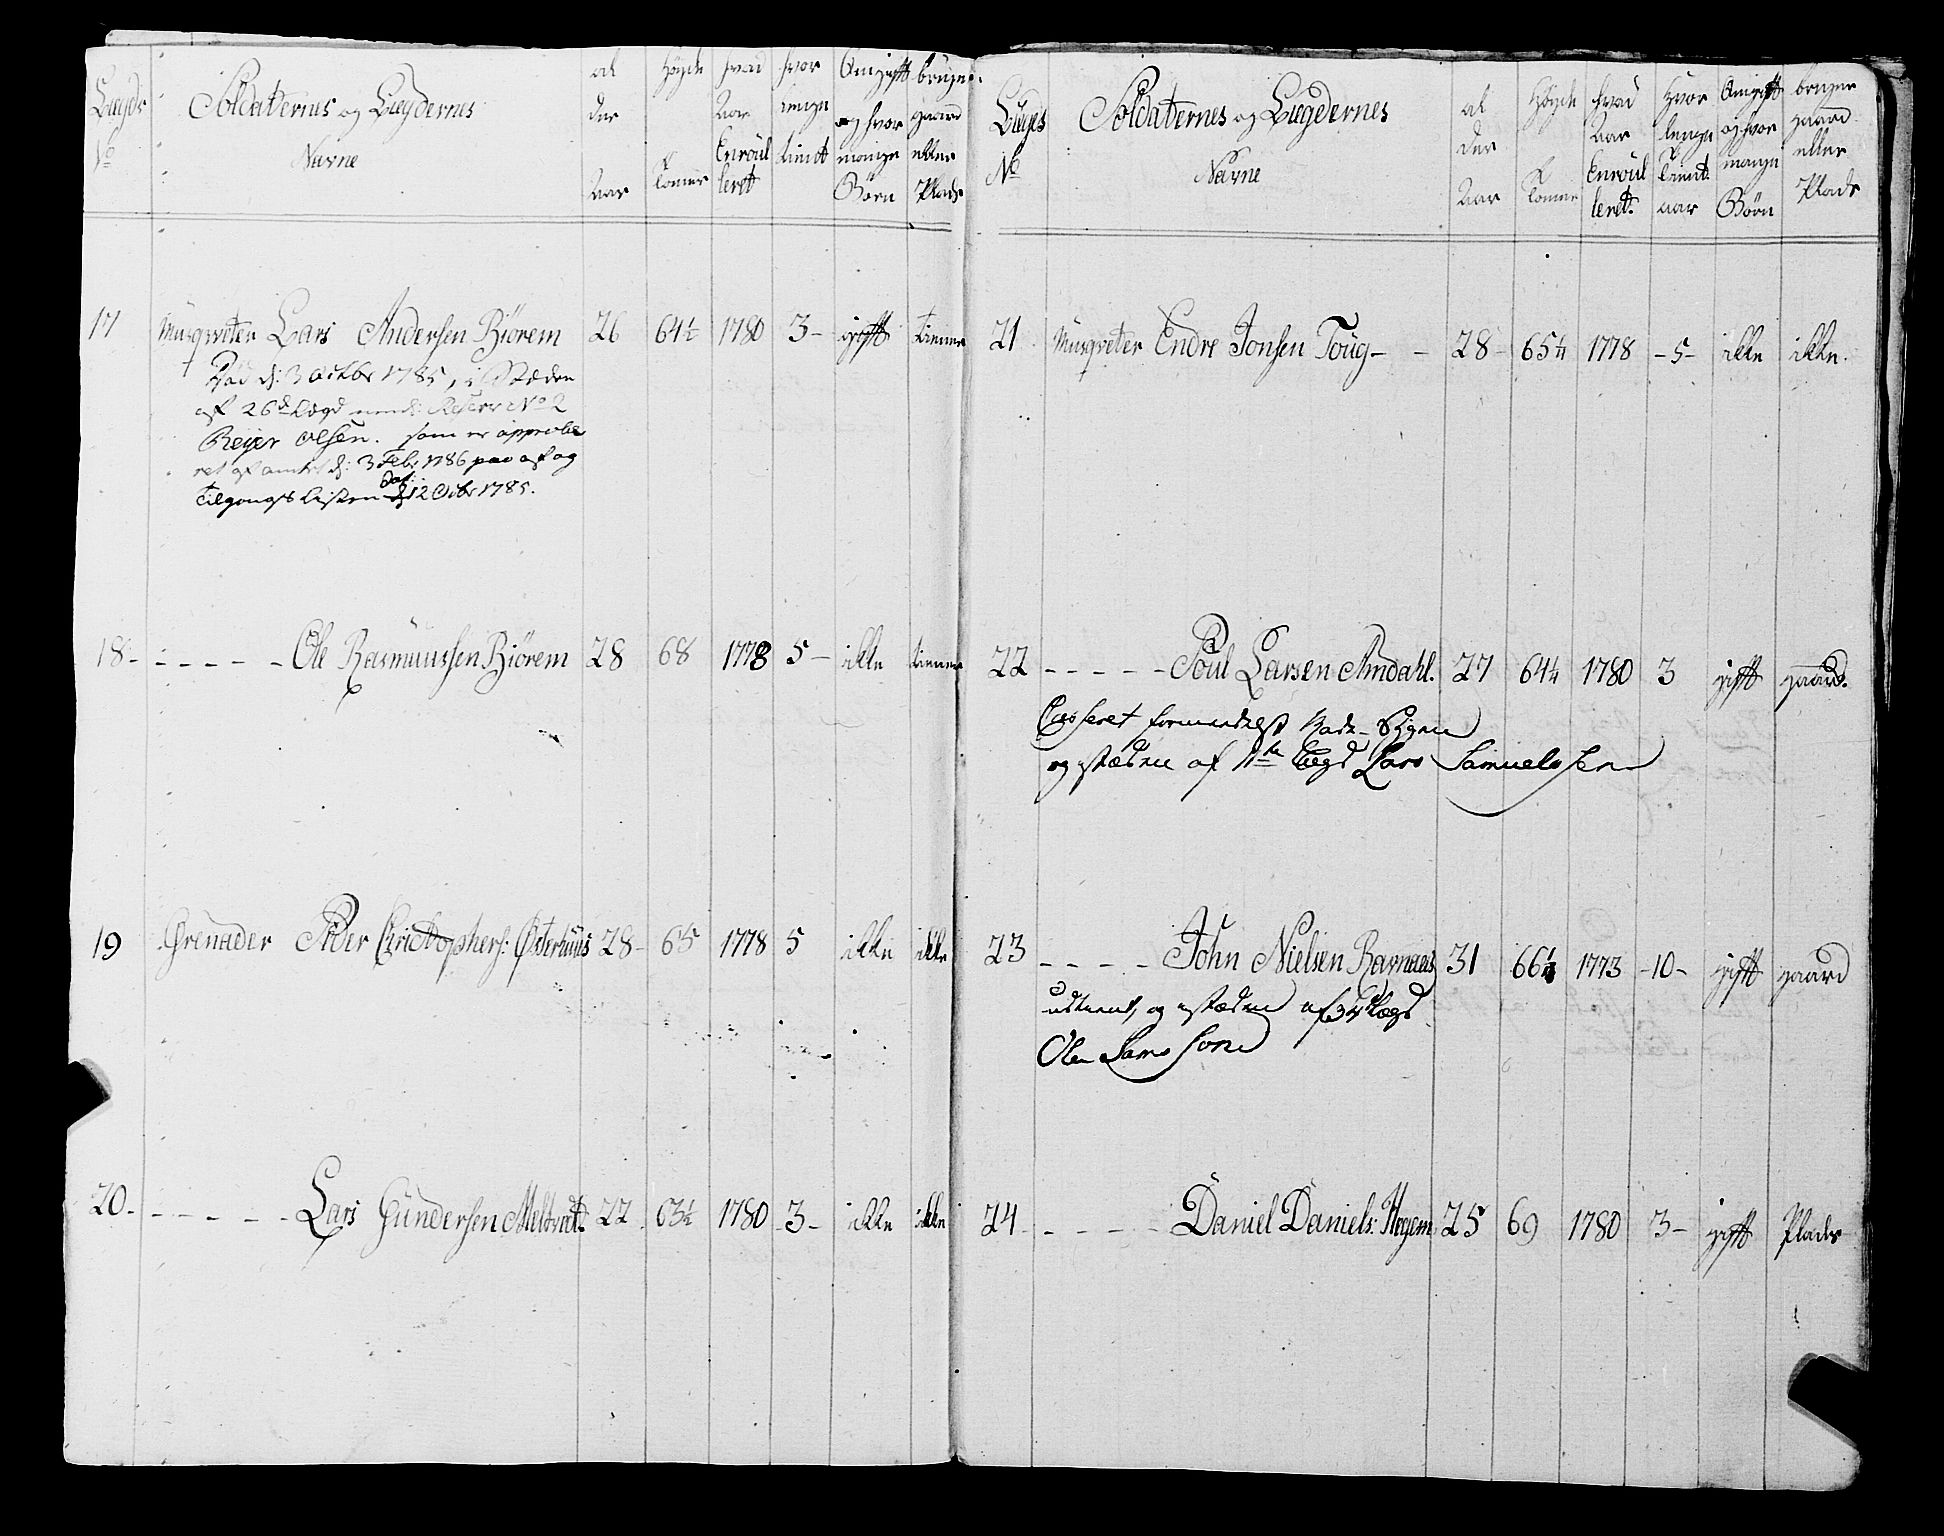 Lægds No | Soldaternes og Lægdernes Navne | al der Aar | Høyde Tomer | hvad Aar Enroulleret | hvor lenge tient | Om gift og hvor mange Børn | bruger gaard eller Plads
17 Musqveter Lars Andersen Biörem 26 64½ 1780 3 - gift tienner
Død d: 3 Octbr 1785, i Stæden
af 26d Lægd Reserv No 2
Reyer Olsen. som er approbe
ret af amtet d: 3 Febr 1786 paa af og
Tilgangs Listen Dat: d 12 Octbr 1785.
18 - - - - - - Ole Rasmussen Biörem 28 68 1778 5 - ikke tienner
19 Grenader Peder Christophers: Østerhuus 28 - 65 1778 5 ikke ikke
20 - - - - - - Lars Gundersen 22 63½ 1780 3 - ikke ikke
Lægs No | Soldaternes og Lægdernes Navne | al der Aar | Høyde Tomer | hvad Aar Enroulleret. | hvor lenge tient aar | Om gift og hvor mange Børn | bruger gaard eller Plads
21 Musqveter Endre Jonsen Toug - - 28 - 65¼ 1778 - 5 - ikke ikke.
22 - - - - - Poul Larsen Amdahl. 27 64¼ 1780 3 gift gaard.
Casseret formedelst
og i stæden af 11te Lægd Lars Samuelssen
23 - - - - John Nielsen Ravnaas 31 66½ 1773 - 10 - gift gaard
udtient, og i stæden af 34 Lægd
Ole Larssen
24 - - - - - Daniel Daniels: Hegem 25 69 1780 3 - gift Plads